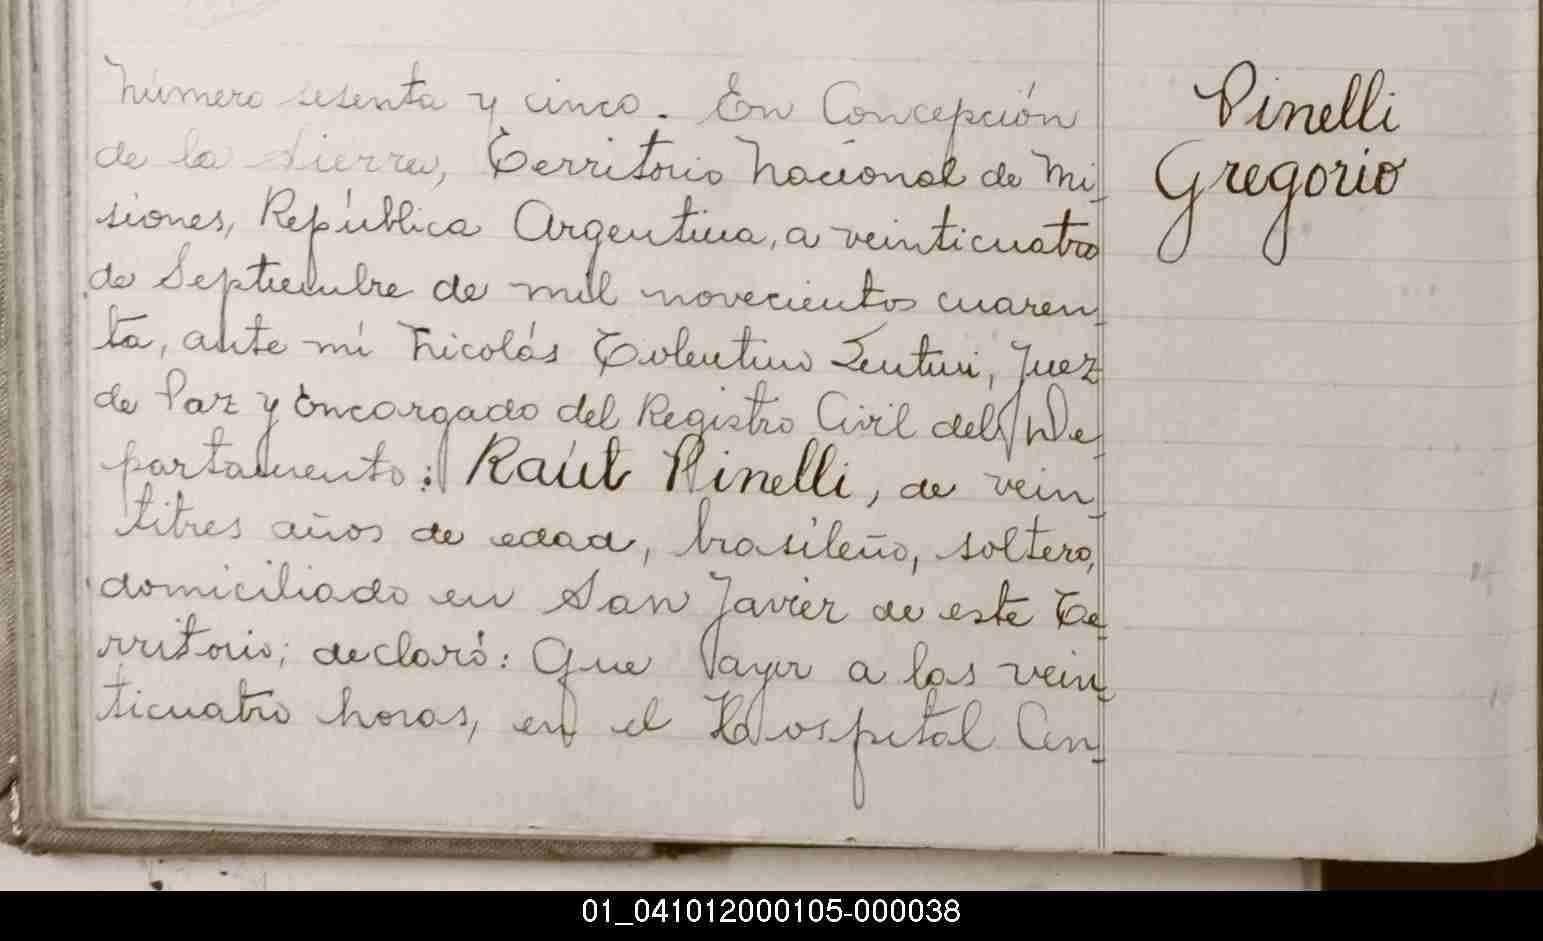 Número sesenta y cinco. En Concepción
de la Sierra, Territorio Nacional de Mi-
siones, República Argentina, a veinticuatro
de Septiembre de mil novecientos cuaren-
ta, ante mí Nicolás Tolentino Sentini, Juez
de Paz y Encargado del Registro Civil del De-
partamento: Raúl Pinelli, de vein-
titres años de edad, brasileño, soltero,
domiciliado en San Javier de este Te-
rritorio; declaró: Que ayer a las vein-
ticuatro horas, en el Hospital Cen-
Pinelli
Gregorio
01_041012000105-000038